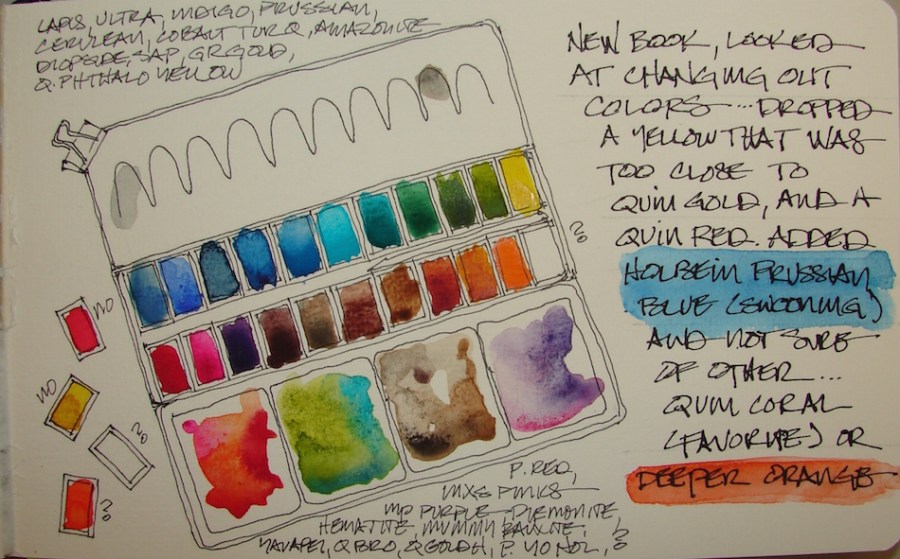 LAPIS, ULTRA, INDIGO, PRUSSIAN,
CERULEAN, COBALT TURQ, AMAZONITE
DIOPSIDE, SAP, GR GOLD,
Q. PHTHALO YELLOW
NEW BOOK, LOOKED
AT CHANGING OUT
COLORS... DROPPED
A YELLOW THAT WAS
TOO CLOSE TO
QUIN GOLD, AND A
QUIN RED. ADDED
HOLBEIN PRUSSIAN
BLUE (SWOONING)
AND NOT SURE
OF OTHER...
QUIN CORAL
(FAVORITE) OR
DEEPER ORANGE
?
NO
NO
?
?
P. RED,
MXS PINKS
MP PURPLE, PIEMONTITE,
HEMATITE, MUMMY BAUXITE,
Q BRO, Q GOLD
?